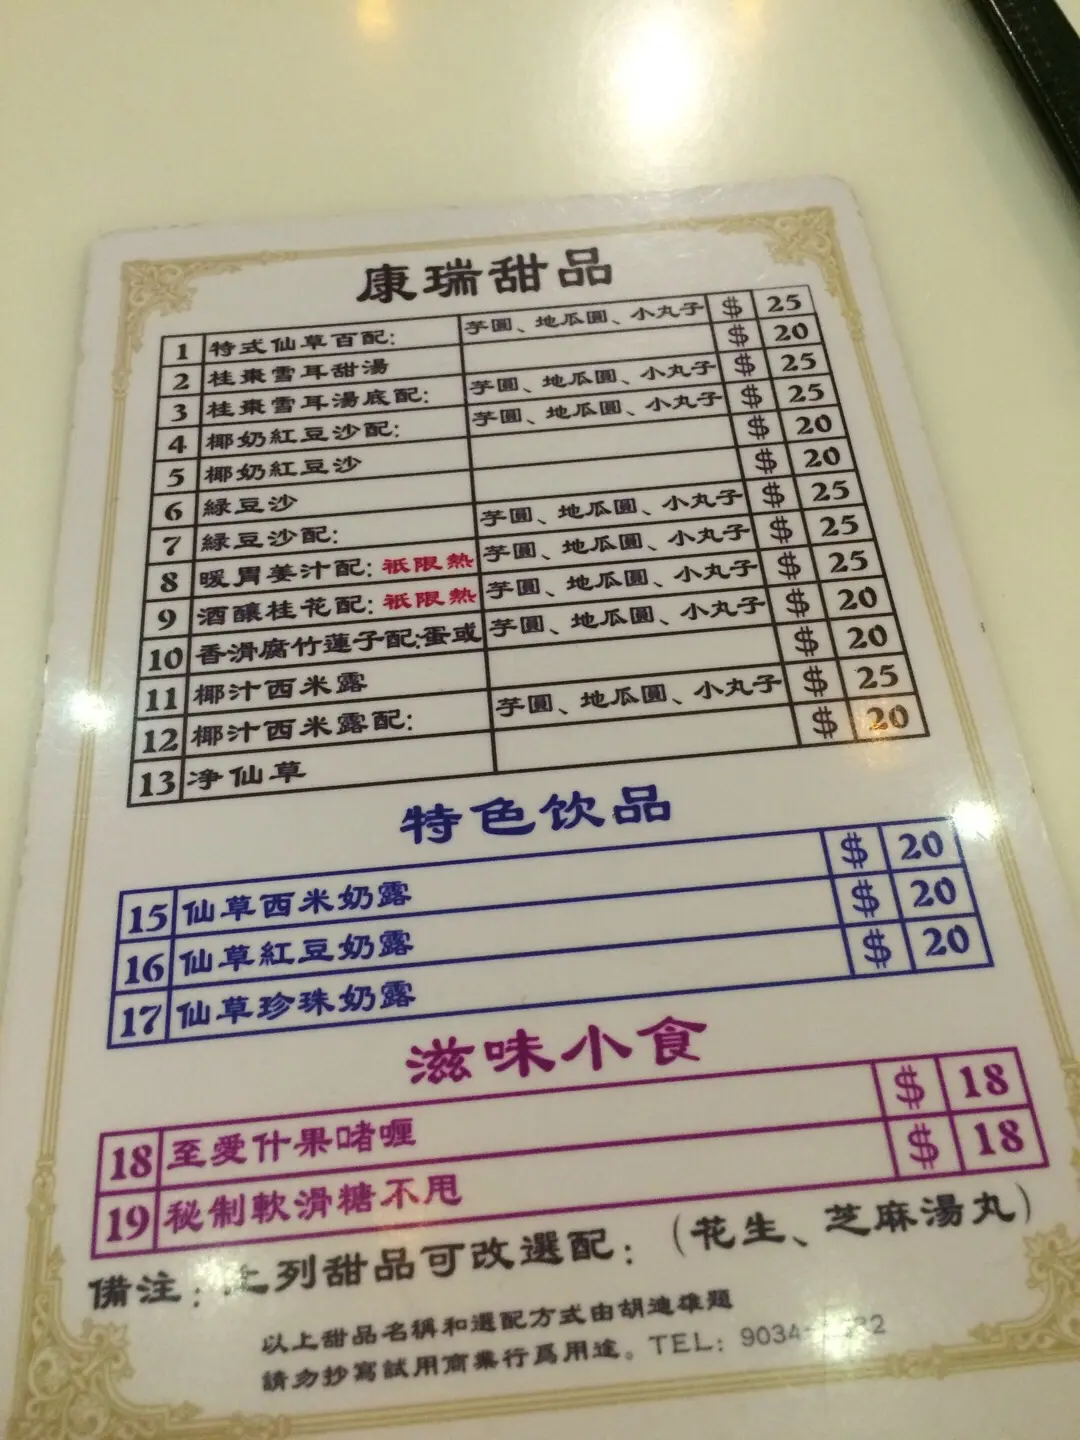 康瑞甜品
1 特式仙草百配: 芋圓、地瓜圓、小丸子 $ 25
2 桂棗雪耳甜湯 $ 20
3 桂棗雪耳湯底配: 芋圓、地瓜圓、小丸子 $ 25
4 椰奶紅豆沙配: 芋圓、地瓜圓、小丸子 $ 25
5 椰奶紅豆沙 $ 20
6 綠豆沙 $ 20
7 綠豆沙配: 芋圓、地瓜圓、小丸子 $ 25
8 暖胃姜汁配: 祇限熱 芋圓、地瓜圓、小丸子 $ 25
9 酒釀桂花配: 祇限熱 芋圓、地瓜圓、小丸子 $ 25
10 香滑腐竹蓮子配:蛋或 芋圓、地瓜圓、小丸子 $ 20
11 椰汁西米露 $ 20
12 椰汁西米露配: 芋圓、地瓜圓、小丸子 $ 25
13 净仙草 $ 20
特色饮品
15 仙草西米奶露 $ 20
16 仙草紅豆奶露 $ 20
17 仙草珍珠奶露 $ 20
滋味小食
18 至愛什果啫喱 $ 18
19 秘制軟滑糖不甩 $ 18
備注: 上列甜品可改選配: (花生、芝麻湯丸)
以上甜品名稱和選配方式由胡迪雄題
請勿抄寫試用商業行爲用途。TEL: